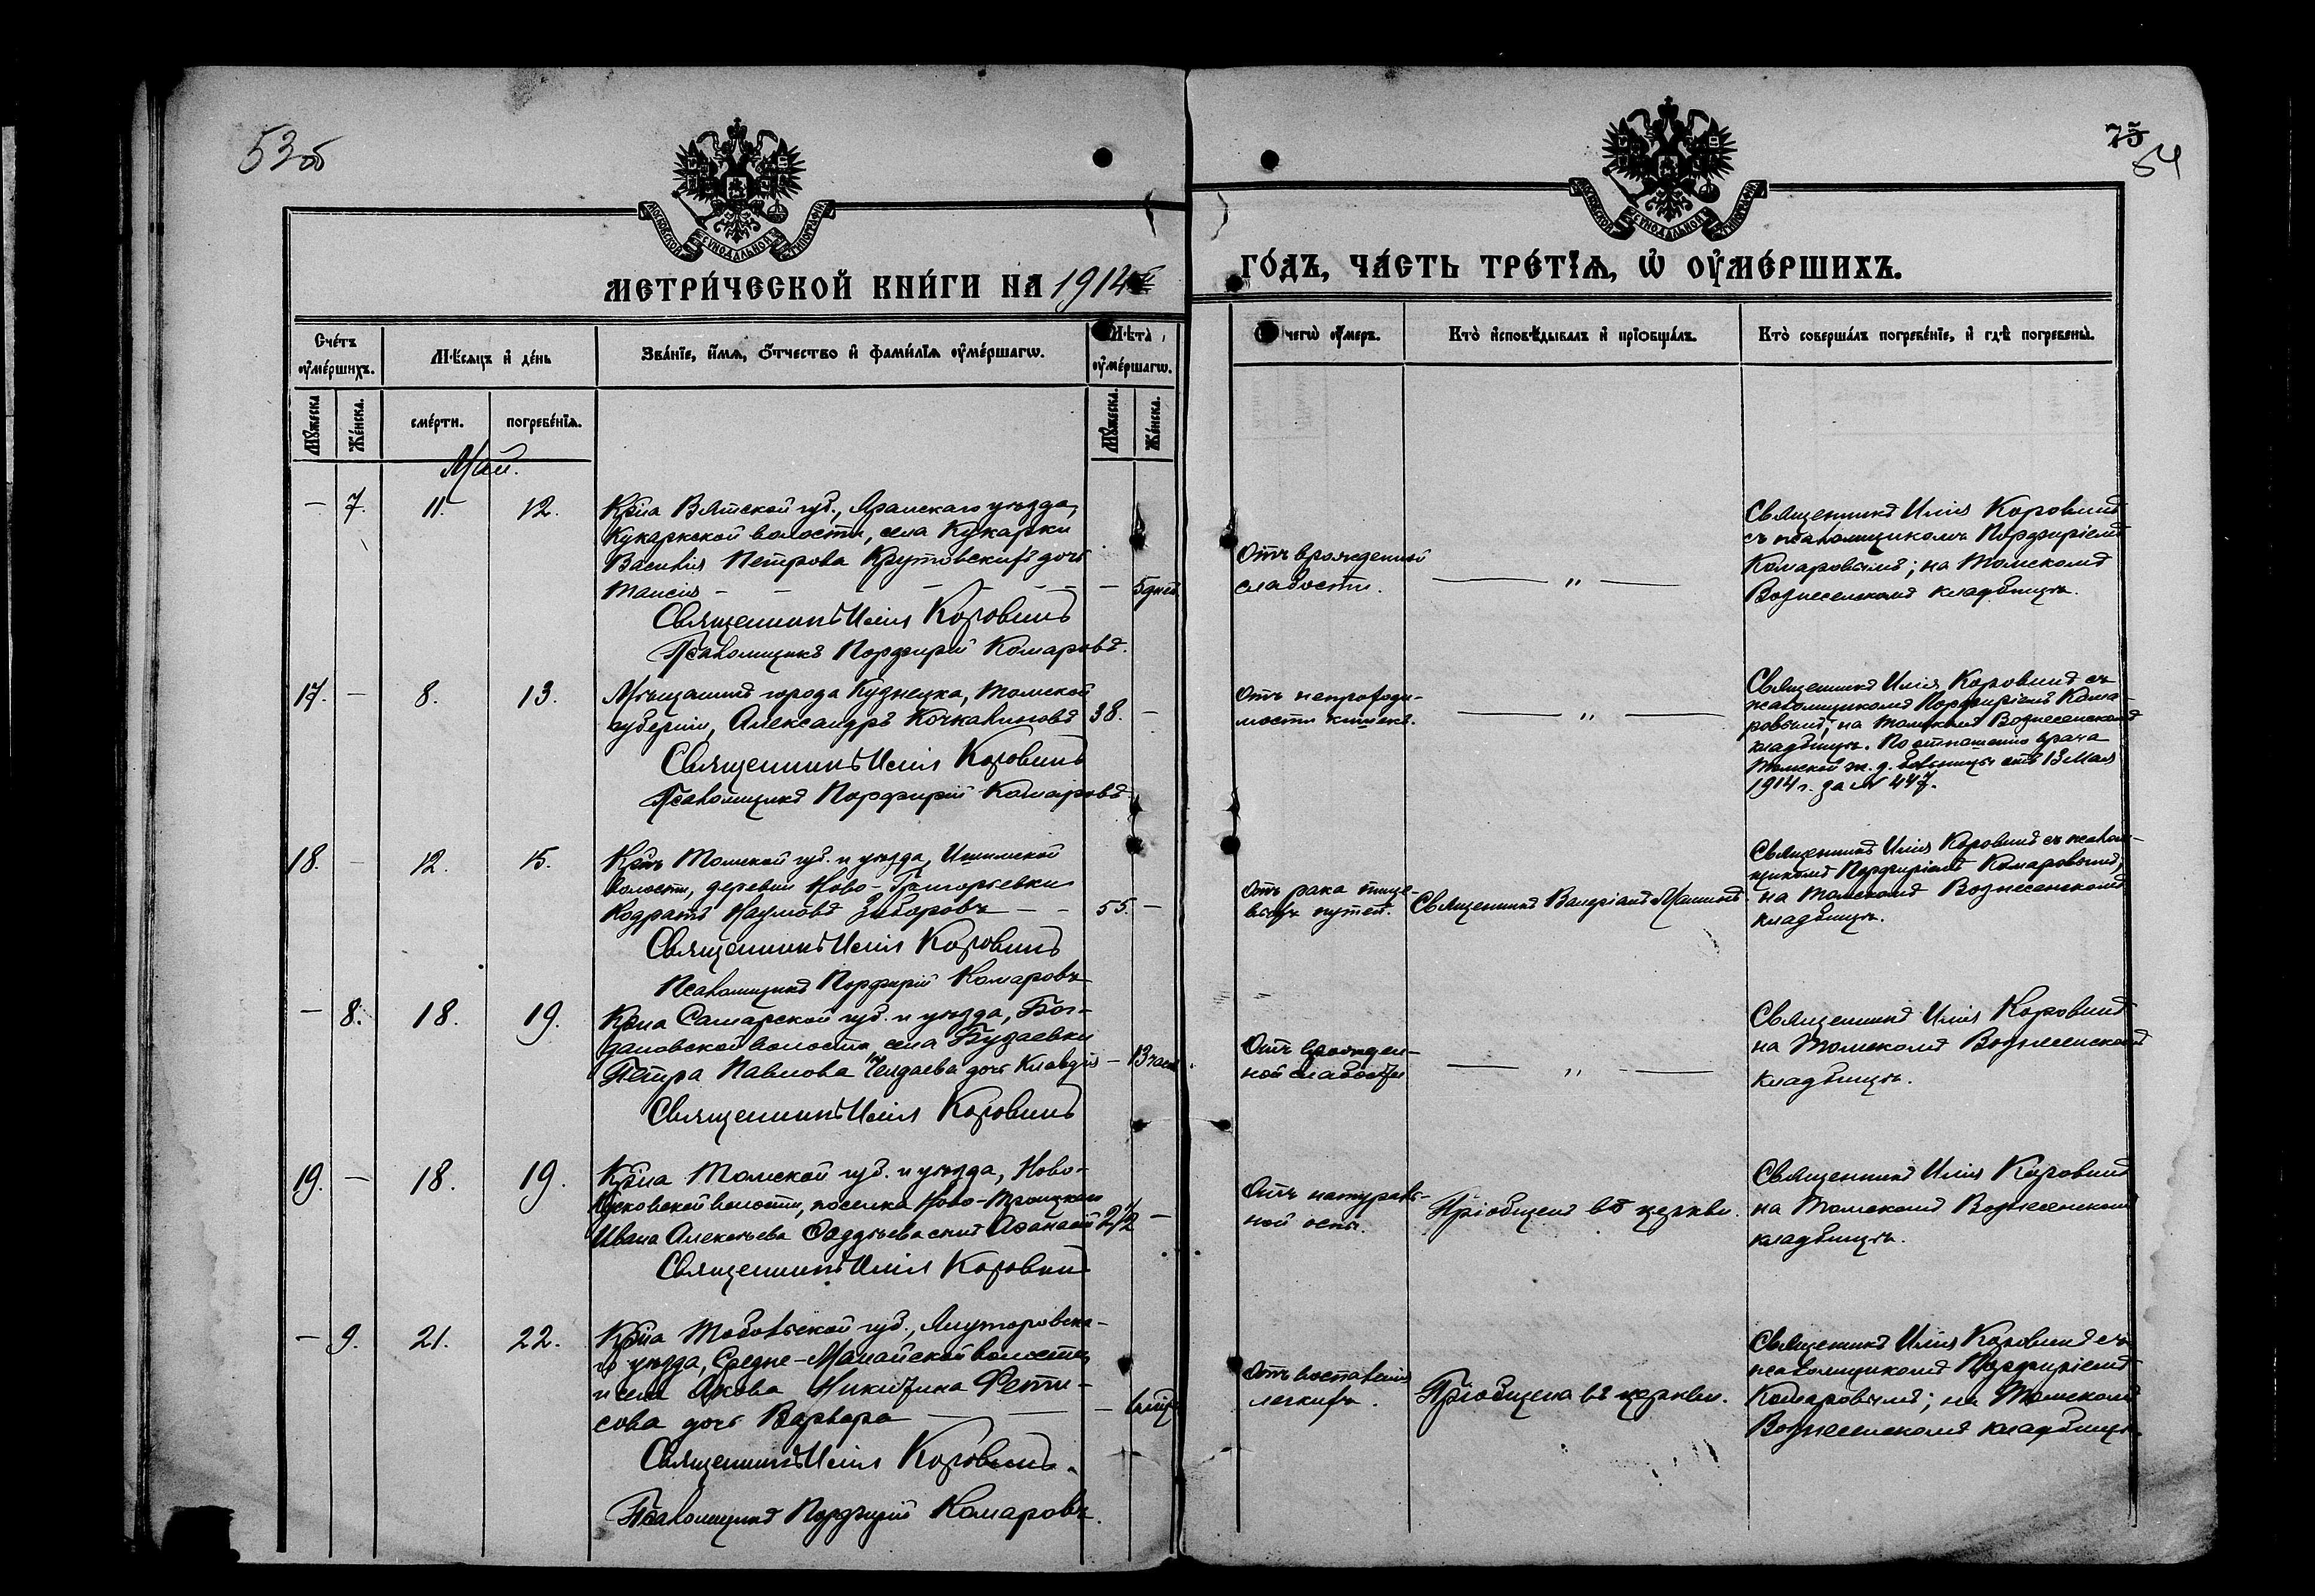 53об
75
54
МОСКОВСКОЙ СѴНОДАЛЬНОЙ ТИПОГРАФІИ
МОСКОВСКОЙ СѴНОДАЛЬНОЙ ТИПОГРАФІИ
МЕТРИ́ЧЕСКОЙ КНИ́ГИ НА 1914й
ГО́ДЪ, ЧА́СТЬ ТРЕ́ТІѦ, Ѡ҆ ОУ҆МЕ́РШИХЪ.
Сче́тъ оу҆ме́ршихъ.
Мѣ́сяцъ и҆ де́нь
Зва́нїе, и҆́мѧ, ѻ҆́тчество и҆ фами́лїѧ оу҆ме́ршагѡ.
Лѣта̀ оу҆ме́ршагѡ.
чегѡ̀ оу҆́меръ.
Кто̀ и҆сповѣ́дывалъ и҆ прїѡбща́лъ.
Кто̀ соверша́лъ погребе́нїе, и҆ гдѣ̀ погребены̀.
Мꙋ́жеска
Же́нска.
сме́рти.
погребе́нїѧ.
Мꙋ́жеска.
Же́нска.
Май.
— 7. 11. 12.
Крна Вятской губ., Яранскаго уѣзда,
Кукарской волости, села Кукарки
Василія Петрова Крутовскихъ дочь
Таисія — — — — — — 5 дней
Священникъ Илія Коровинъ
Псаломщикъ Порфирій Комаровъ.
Отъ врожденной
слабости.
— „ —
Священникъ Илія Коровинъ
съ псаломщикомъ Порфиріемъ
Комаровымъ; на Томскомъ
Вознесенскомъ кладбищѣ.
17. — 8. 13.
Мѣщанинъ города Кузнецка, Томской
губерніи, Александръ Кочкалиновъ 38. —
Священникъ Илія Коровинъ
Псаломщикъ Порфирій Комаровъ
Отъ непроходи-
мости кишекъ.
— „ —
Священникъ Илія Коровинъ съ
псаломщикомъ Порфиріемъ Кома-
ровымъ, на Томскомъ Вознесенскомъ
кладбищѣ. По отношенію врача
Томской ж. д. больницы отъ 13 Мая
1914 г. за № 447.
18. — 12. 15.
Крнъ Томской губ. и уѣзда, Ишимской
волости, деревни Ново-Григорьевки
Кодратъ Наумовъ Зиборовъ — — 55. —
Священникъ Илія Коровинъ
Псаломщикъ Порфирій Комаровъ
Отъ рака пище-
выхъ путей.
Священникъ Валеріанъ
Священникъ Илія Коровинъ съ псалом-
щикомъ Порфиріемъ Комаровымъ,
на Томскомъ Вознесенскомъ
кладбищѣ.
— 8. 18. 19.
Крна Самарской губ. и уѣзда, Бог-
дановской волости, села Бузаевки
Петра Павлова дочь Клавдія — 13 час.
Священникъ Илія Коровинъ
Отъ врожден-
ной слабости
— „ —
Священникъ Илія Коровинъ
на Томскомъ Вознесенскомъ
кладбищѣ.
19. — 18. 19.
Крна Томской губ. и уѣзда, Ново-
Кусковской волости, поселка Ново-Троицкаго
Ивана Алексѣева Ѳаддѣева сынъ Аѳанасій 2½ —
Священникъ Илія Коровинъ
Отъ натураль-
ной оспы.
Пріобщенъ въ церкви.
Священникъ Илія Коровинъ
на Томскомъ Вознесенскомъ
кладбищѣ.
— 9. 21. 22.
Крна Тобольской губ., Ялуторовска-
го уѣзда, Средне-Малайской волости
и села Якова Никитина Фети-
сова дочь Варвара — — —
Священникъ Илія Коровинъ.
Псаломщикъ Порфирій Комаровъ.
Отъ воспаленія
легкихъ.
Пріобщена въ церкви.
Священникъ Илія Коровинъ съ
псаломщикомъ Порфиріемъ
Комаровымъ; на Томскомъ
Вознесенскомъ кладбищѣ.